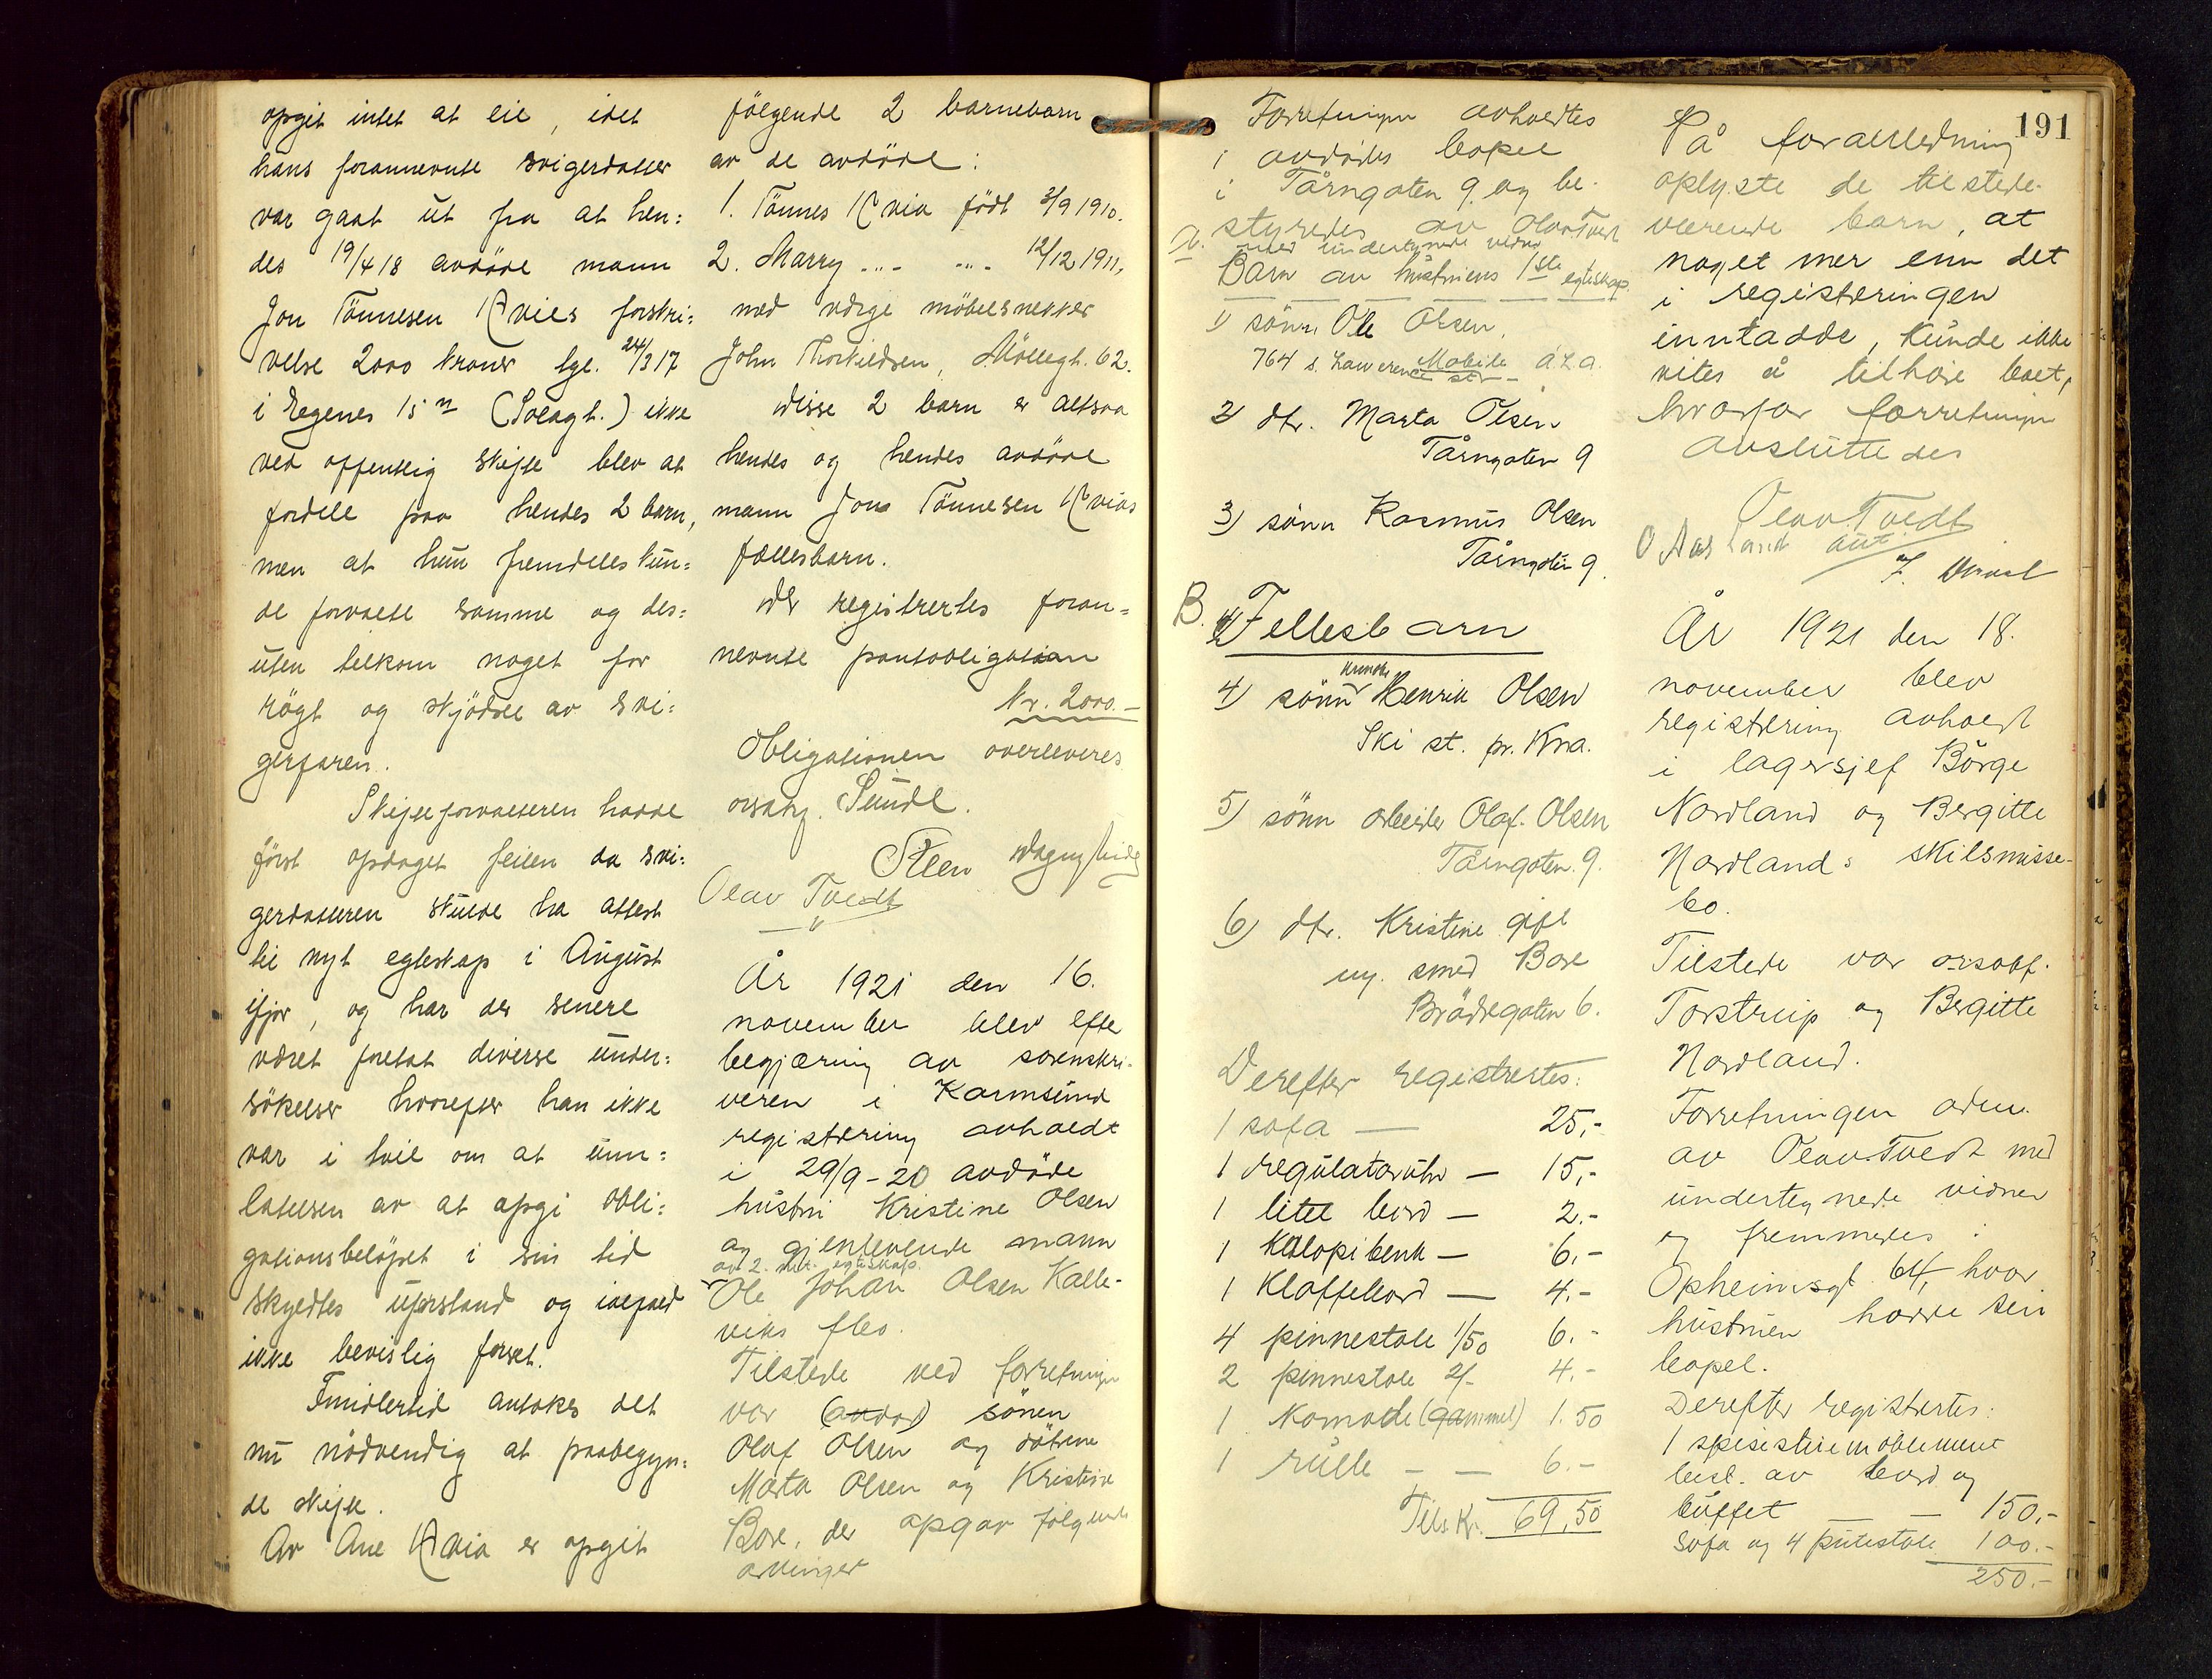 opgit intet at eie, idet
hans forannevnte svigerdatter
var gaat ut fra at hen:
des 19/4 18 avdøde mann
Jon Tønnesen Kvies forskri:
velse 2000 kroner tgl. 24/3 17
i Egenes 15 n (Solagt.) ikke
ved offentlig skifte blev at
fordele paa hendes 2 barn,
men at hun fremdeles kun:
de forvalte samme og des:
uten tilkom noget for
røgt og skjødsel av svi:
gerfaren.
Skifteforvalteren hadde
først opdaget feilen da svi:
gerdatteren skulde ha attest
til nyt egteskap i August
ifjor, og har der senere
været foretat diverse under:
søkelser hvorefter han ikke
var i tvil om at unn:
latelsen av at opgi obli:
gationsbeløpet i sin tid
skyldtes uforstand og ialfald
ikke bevislig forset.
Imidlertid antokes det
nu nødvendig at paabegyn:
de skifte.
Av Ane Kvia er opgit
følgende 2 barnebarn
av de avdøde:
1. Tønnes Kvia født 3/9 1910.
2. Marry -"- -"- 12/12 1911,
med verge møbelsnekker
John Thorkildsen, Møllegt. 62.
Disse 2 barn er altsaa
hendes og hendes avdøde
mann Jons Tønnesen Kvias
fællesbarn.
Der registrertes foran=
nevnte pantobligation
Kr. 2000.-
Obligationen overleveres
orsakf. Sundt.
Steen
Olav Tvedt
År 1921 den 16.
november blev efter
begjæring av sorenskri-
veren i Karmsund
registrering avholdt
i 29/9-20 avdøde
hustru Kristine Olsen
og gjenlevende mann
av 2. egteskap
Ole Johan Olsen Kalle-
viks flbo.
Tilstede ved forretningen
var (avdød) sønen
Olaf Olsen og døtrene
Marta Olsen og Kristine
Bore, der opgav følgende
arvinger
191
Forretningen avholdtes
i avdødes bopel
i Tårngaten 9. og be-
styredes av Olav Tvedt
med undertegnede vidner
A. Barn av hustruens 1ste egteskap
1) sønn Ole Olsen,
764 s. Lawerence st. Mobile Ala.
2) dtr. Marta Olsen
Tårngaten 9
3) sønn Rasmus Olsen
Tårngaten 9.
B. Fellesbarn
4) sønn Henrik Olsen
Ski st. pr. Kra.
5) sønn arbeider Olaf Olsen
Tårngaten 9.
6) dtr. Kristine gift
m. smed Bore
Brødregaten 6.
Derefter registrertes:
1 sofa — 25,-
1 regulatoruhr — 15,-
1 litet bord — 2.-
1 Kalopibenk — 6,-
1 Klaffebord — 4.-
4 pinnestole 1/50 6.-
2 pinnestole 2/- 4.-
1 Komode (gammel) 1.50
1 rulle — — 6.-
Tils Kr. 69,50
På foranledning
oplyste de tilstede-
værende barn, at
noget mer enn det
i registreringen
inntadde, kunde ikke
vites å tilhøre boet,
hvorfor forretningen
avsluttedes
Olav Tvedt
aut.
O Aasland
År 1921 den 18.
november blev
registrering avholdt
i lagersjef Børge
Nordland og Bergitte
Nordlands skilsmisse-
bo.
Tilstede var orsakf.
Torstrup og Bergitte
Nordland.
Forretningen adm.
av Olav Tvedt med
undertegnede vidner
og fremmedes i
Opheimsgt 64, hvor
hustruen hadde sin
bopel.
Derefter registrertes:
1 spisestuemøblement
best. av bord og
buffet — — 150,-
Sofa og 4 putestole 100.-
250.-